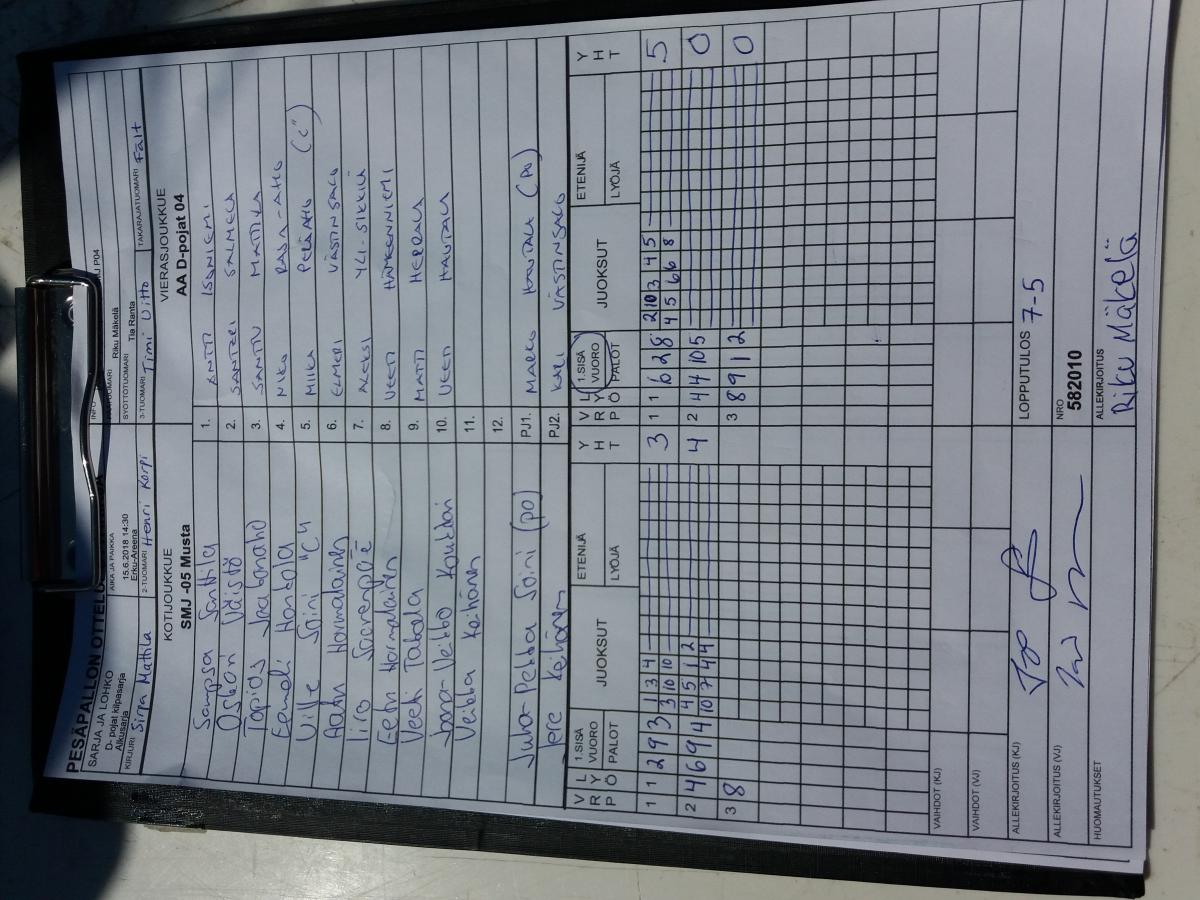 PESÄPALLON OTTELU
SARJA JA LOHKO
D- pojat kilpasarja
Alkusarja
AIKA JA PAIKKA
15.6.2018 14:30
Erku-Areena
INFO
P04
Riku Mäkelä
SYÖTTÖTUOMARI Tia Ranta
KIRJURI Sirpa Mattila
2-TUOMARI Henri Korpi
3-TUOMARI Timi Uitto
TAKARAJATUOMARI Fält
KOTIJOUKKUE
SMJ -05 Musta
VIERASJOUKKUE
AA D-pojat 04
Sampsa Santtila 1. ANTTI ISONIEMI
Oskari Väistö 2. SANTERI SALMELA
Topias 3. SANTTU MATTILA
Eemeli Hantula 4. NIKO RAJA-AHO
Ville Soini "C" 5. MIIKA PERÄAHO ("C")
6. ELMERI VÄSTINSALO
Iiro 7. ALEKSI YLI-SIKKILÄ
Eeri Hormalainen 8. VEETI HÄMEENNIEMI
Veeti Takala 9. MATTI HEERALA
10. VEETI HAUTALA
11.
12.
Juha-Pekka Soini (PO) PJ1. MARKO HAUTALA (PO)
Jere Kehänen PJ2. KARI VÄSTINSALO
V R P L Y Ö 1.SISÄ VUORO PALOT JUOKSUT ETENIJÄ LYÖJÄ Y H T
V R P L Y Ö 1.SISÄ VUORO PALOT JUOKSUT ETENIJÄ LYÖJÄ Y H T
1 1 2 9 3 1 3 4 3 1 1 6 2 8 2 10 3 4 5 5
3 10 10 4 5 6 6 8
2 4 6 9 4 4 5 1 2 4 2 4 4 10 5 0
10 7 4 4
3 8 3 8 9 1 2 0
VAIHDOT (KJ)
VAIHDOT (VJ)
ALLEKIRJOITUS (KJ)
LOPPUTULOS 7-5
ALLEKIRJOITUS (VJ)
NRO
582010
HUOMAUTUKSET
ALLEKIRJOITUS
Riku Mäkelä